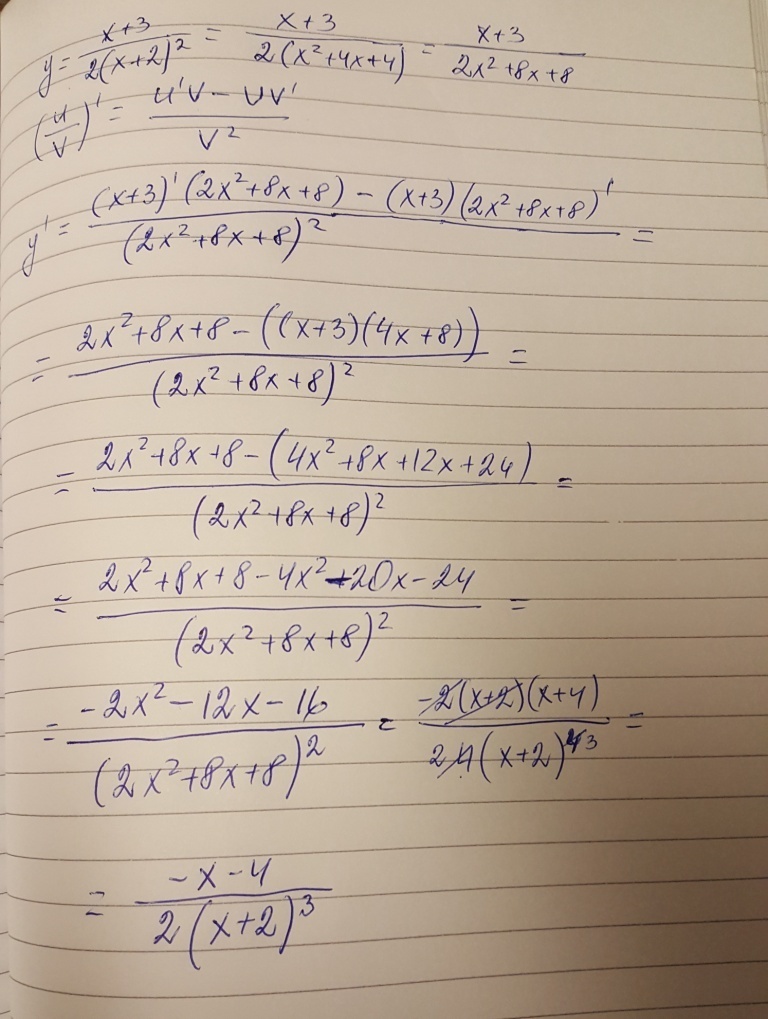 y = (x+3)/(2(x+2)²) = (x+3)/(2(x²+4x+4)) = (x+3)/(2x²+8x+8)
(u/v)' = (u'v - uv')/v²
y' = ((x+3)'(2x²+8x+8) - (x+3)(2x²+8x+8)')/(2x²+8x+8)² =
= (2x²+8x+8-((x+3)(4x+8)))/(2x²+8x+8)² =
= (2x²+8x+8-(4x²+8x+12x+24))/(2x²+8x+8)² =
= (2x²+8x+8-4x²-20x-24)/(2x²+8x+8)² =
= (-2x²-12x-16)/(2x²+8x+8)² = (-2(x+2)(x+4))/(2 4(x+2)⁴ ³) =
= (-x-4)/(2(x+2)³)